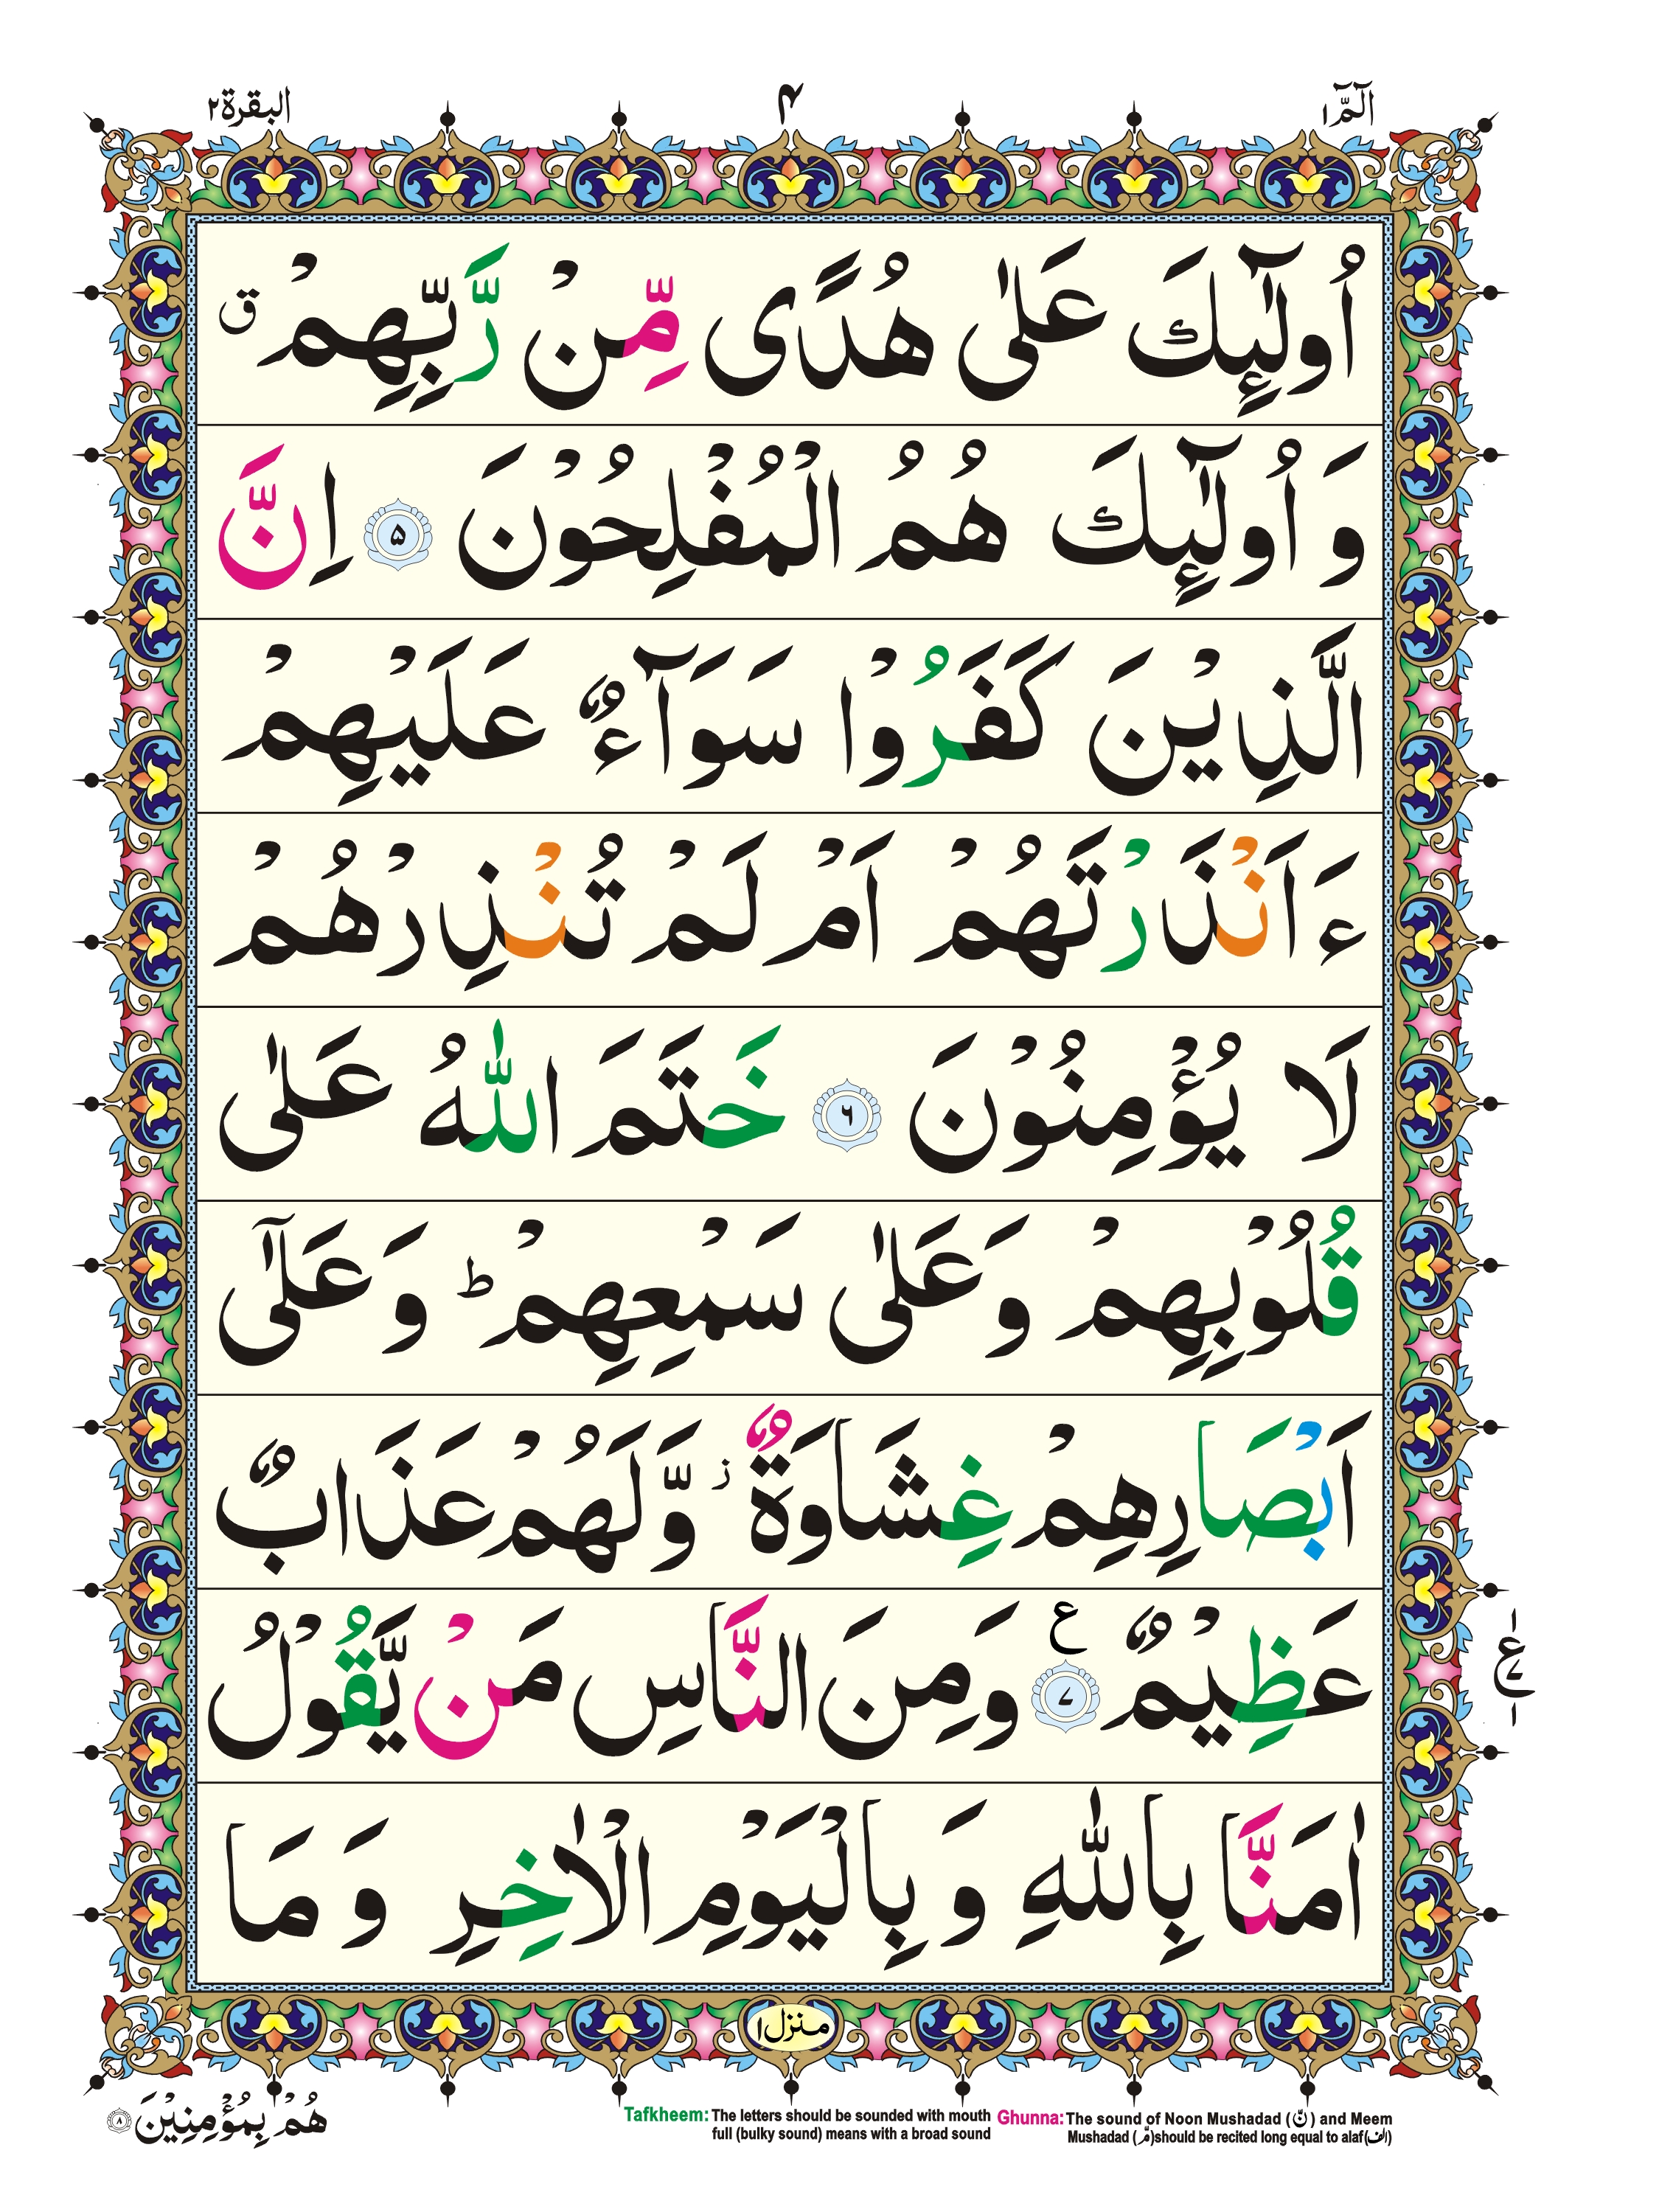 الٓمّٓ ۱
۴
البقرة ۲
اُولٰٓئِكَ عَلٰی هُدًی مِّنْ رَّبِّهِمْ ق
وَ اُولٰٓئِكَ هُمُ الْمُفْلِحُوْنَ ۵ اِنَّ
الَّذِیْنَ كَفَرُوْا سَوَآءٌ عَلَیْهِمْ
ءَاَنْذَرْتَهُمْ اَمْ لَمْ تُنْذِرْهُمْ
لَا یُؤْمِنُوْنَ ۶ خَتَمَ اللّٰهُ عَلٰی
قُلُوْبِهِمْ وَعَلٰی سَمْعِهِمْ ؕ وَعَلٰۤی
اَبْصَارِهِمْ غِشَاوَةٌ ز وَّلَهُمْ عَذَابٌ
عَظِیْمٌ ۷ ع وَمِنَ النَّاسِ مَنْ یَّقُوْلُ
اٰمَنَّا بِاللّٰهِ وَبِالْیَوْمِ الْاٰخِرِ وَ مَا
۱
ع ۷
۱
منزل ۱
هُمْ بِمُؤْمِنِیْنَ ۸
Tafkheem: The letters should be sounded with mouth
full (bulky sound) means with a broad sound
Ghunna: The sound of Noon Mushadad (نّ) and Meem
Mushadad (مّ)should be recited long equal to alaf(الف)